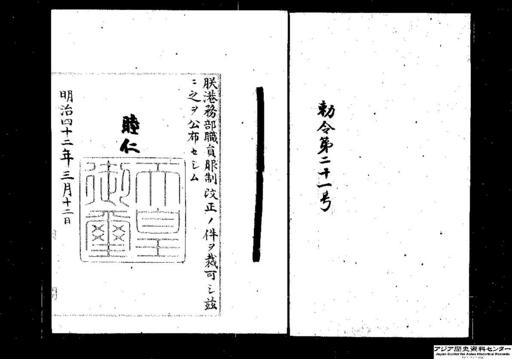 勅令第二十一号
朕港務部職員服制改正ノ件ヲ裁可シ玆
ニ之ヲ公布セシム
睦仁
天皇御璽
明治四十二年三月十二日
アジア歴史資料センター
Japan Center for Asian Historical Records